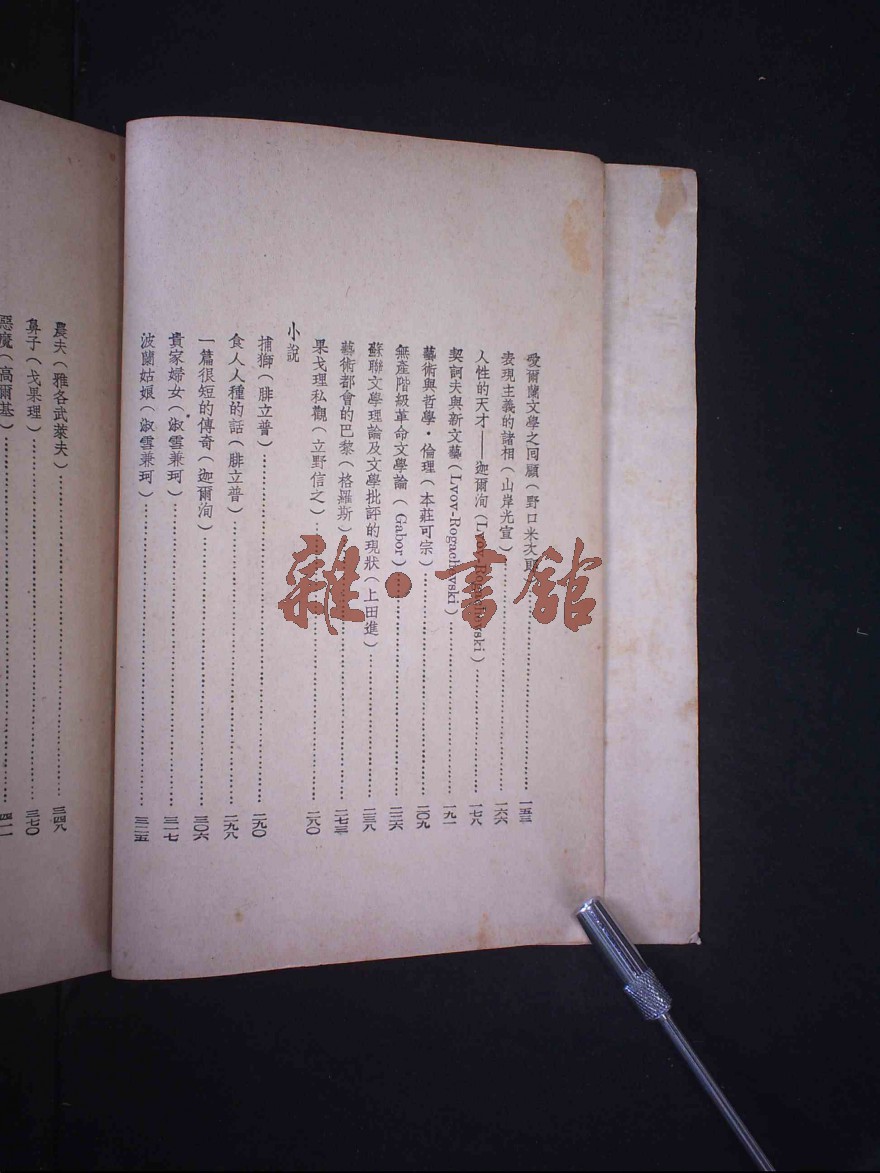 愛爾蘭文學之回顧(野口米次郎)……一五三
表現主義的諸相(山岸光宣)……一六六
人性的天才——迦爾洵(Lvov-Rogachevski)……一七八
契訶夫與新文藝(Lvov-Rogachevski)……一九一
藝術與哲學・倫理(本莊可宗)……二〇九
無產階級革命文學論(Gabor)……二二六
蘇聯文學理論及文學批評的現狀(上田進)……二三八
藝術都會的巴黎(格羅斯)……二七三
果戈理私觀(立野信之)……二八〇
小說
捕獅(腓立普)……二九〇
食人人種的話(腓立普)……二九八
一篇很短的傳奇(迦爾洵)……三〇六
貴家婦女(淑雪兼珂)……三一七
波蘭姑娘(淑雪兼珂)……三二五
農夫(雅各武萊夫)……三四八
鼻子(戈果理)……三七〇
惡魔(高爾基)……四一一
雜・書館